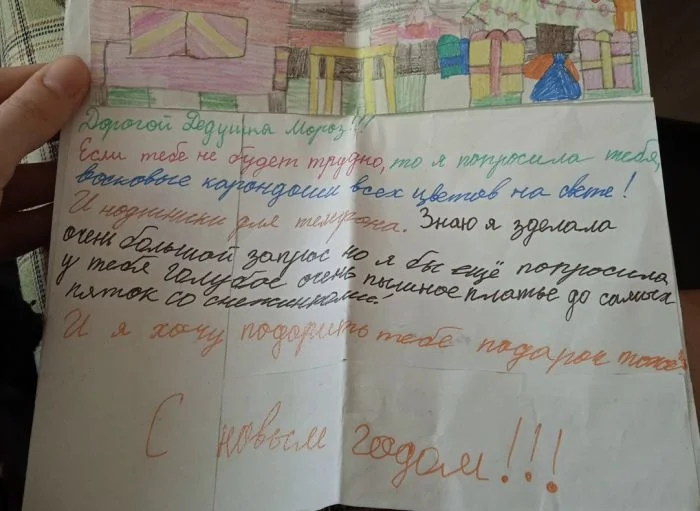 Дорогой Дедушка Мороз!!!
Если тебе не будет трудно, то я попросила тебя,
восковые карандоши всех цветов на свете!
И
для
. Знаю я зделала
очень большой запрос но я бы ещё попросила
у тебя голубое очень пышное платье до самых
пяток со снежинками!
И я хочу подарить тебе подарок тоже
С новым годом!!!